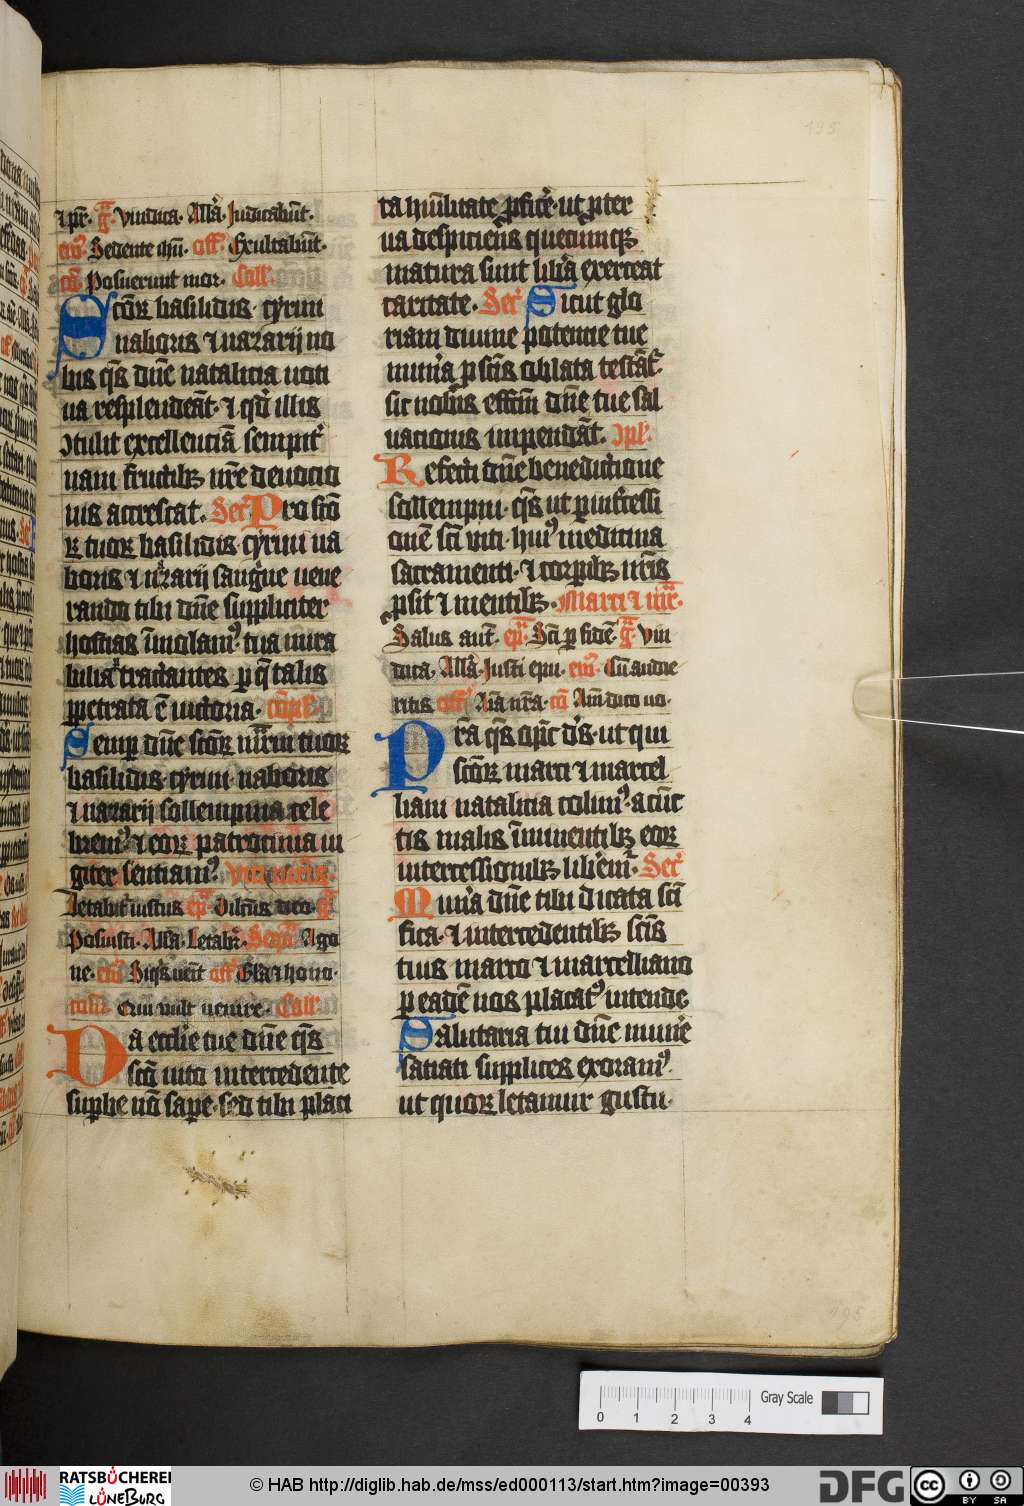 195
⁊ pr̄. gͣ. Vindica. Allͣ. Iudicabūt.
eu̅. Sedente ihū. off. Exultabūt.
cō. Posuerunt mor. Coll͛.
Scōꝝ basilidis. cyrini
naboris ⁊ nazarij no
bis qs̄ dn̄e natalicia uoti
ua resplendeāt. ⁊ qd̓ illis
ɔtulit excellenciā sempit͛
nam fructibꝫ nr̄e deuocio
nis accrescat. Secr͛ Pro scō
ꝝ tuoꝝ basilidis. cyrini na
boris ⁊ nazarij sangⁱne uene
rando tibi dn̄e suppliciter
hostias ī̄molamꝰ. tua mira
bilia ꝑtractantes ꝑ q̄ talis
ꝑpetrata ē uictoria. cōpl͛.
Semꝑ dn̄e scōꝝ mr̄m tuoꝝ
basilidis. cyrini. naboris
⁊ nazarij sollempnia cele
bremꝰ. ⁊ eoꝝ patrocinia iu
giter sentiamꝰ. Viti mr̄is.
Letabit͛ iustus ep̄. Dilcūs deo. gͣ
Posuisti. Allͣ. Letab͛. Seqn̄. Ago
ne. eu̅. Siqs̓ uēit off. Glā ⁊ hono.
cōm. Qui vult uenire. Coll͛.
Da ecclīe tue dn̄e qs̄
scō uito intercedente
suꝑbe nō saꝑe. sed tibi placi
ta hūilitate ꝓfice͛. ut ꝓter
ua despiciens quecumqꝫ
matura sunt lib͛a exerceat
caritate. Secr͛ Sicut glo
riam diuine potencie tue
mun͛a ꝓ scīs oblata testāt͛.
sic nobis effcm̄ dn̄e tue sal
uacionis impendāt. Ɔpl͛.
Refecti dn̄e benedictione
sollempni. qs̄ ut ꝑ int͛cessi
onē sc̄i viti. huiꝰ medicina
sacramenti. ⁊ corꝑibꝫ nr̄is
ꝓsit ⁊ mentibꝫ. Marci ⁊ mr̄c.
Salus aut̄. ep̄. Sc̄i ꝑ fidē. gͣ Vin
dica. Allͣ. Iusti epu. eu̅. Cū audie
ritis off. Aīa nr̄a. cō Am̄ dico uo.
Pr̄a qs̄ om̄ps ds̓. ut qui
scōꝝ marci ⁊ marcel
liani natalicia colimꝰ. a cūc
tis malis ī̄minentibꝫ eoꝝ
intercessionibꝫ lib͛em͛. Secr͛
Mun͛a dn̄e tibi dicata sc̄i
fica. ⁊ intercedentibꝫ scīs
tuis marco ⁊ marcelliano
ꝑ eadē nos placatꝰ intende
Salutaris tui dn̄e mun͛e
satiati supplices exoramꝰ.
ut quoꝝ letamur gustu.
195
Gray Scale
0 1 2 3 4
RATSBÜCHEREI
LÜNEBURG
© HAB http://diglib.hab.de/mss/ed000113/start.htm?image=00393
DFG
cc BY SA